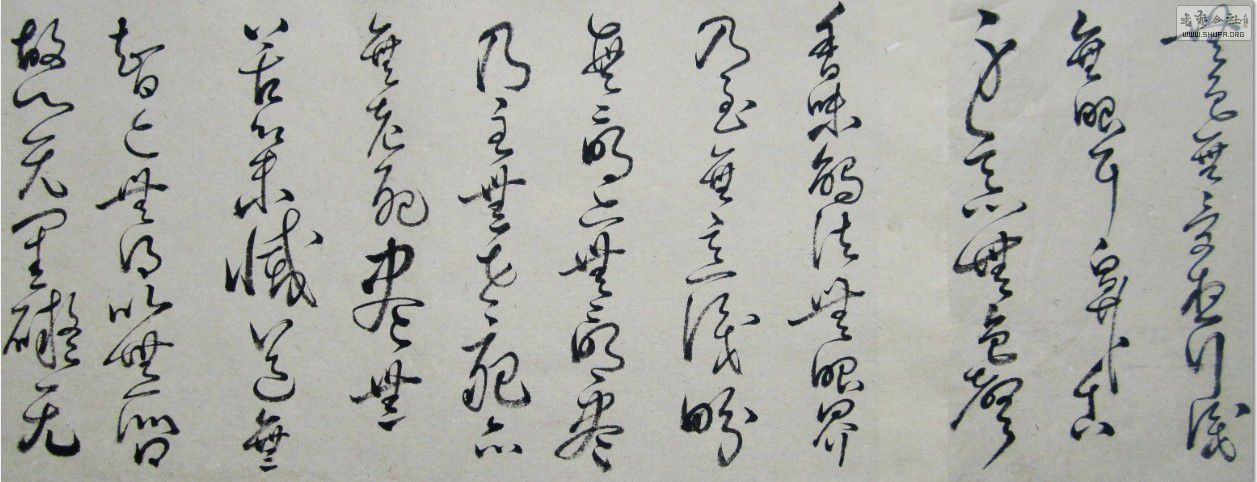 無色無受想行識
無眼耳鼻舌
身意無色聲
香味觸法無眼界
乃至無意識界
無〻明亦無〻明盡
乃至無老死亦
無老死盡無
苦集滅道無
智亦無得以無所得
故心无罣礙无
WWW.SHUFA.ORG